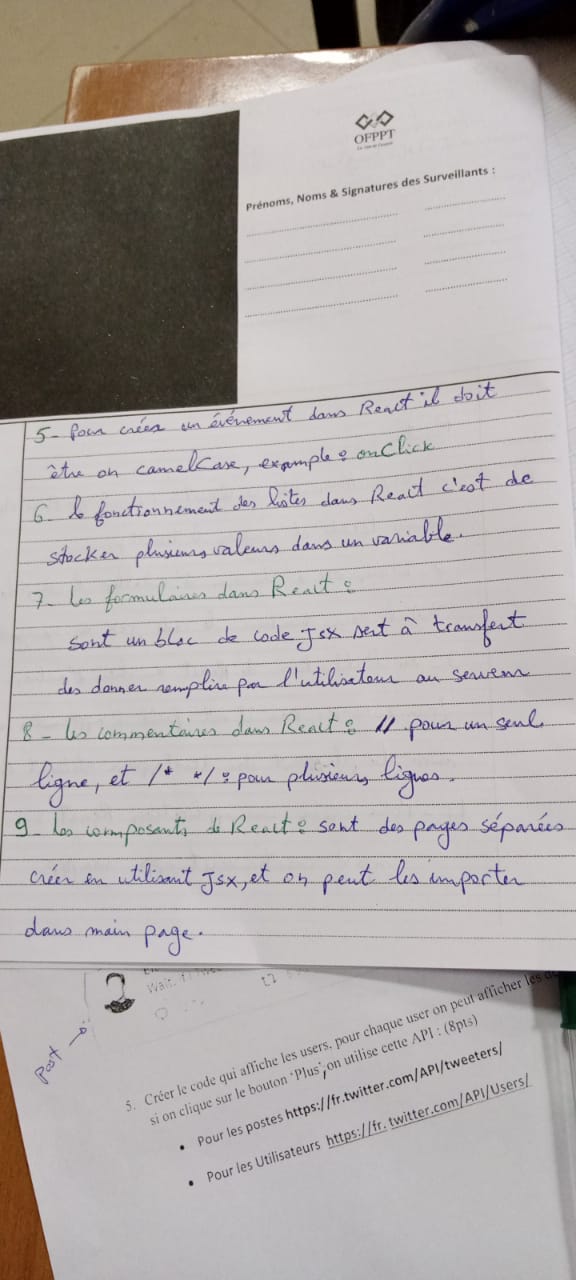 OFPPT
Prénoms, Noms & Signatures des Surveillants :
5- Pour créer un événement dans React il doit
être on camelCase, example : onClick
6- le fonctionnement des listes dans React c'est de
stocker plusieurs valeurs dans un variable.
7- les formulaires dans React :
sont un bloc de code Jsx sert à transfert
des donner remplire par l'utilisateur au serveur
8- les commentaires dans React : // pour un seul
ligne, et /* */ : pour plusieurs lignes.
9- Les composants de React : sont des pages séparées
créer en utilisant Jsx, et on peut les importer
dans main page.
Post
5. Créer le code qui affiche les users, pour chaque user on peut afficher les
si on clique sur le bouton 'Plus', on utilise cette API : (8pts)
• Pour les postes https://fr.twitter.com/API/tweeters/
• Pour les Utilisateurs https://fr. twitter.com/API/Users/